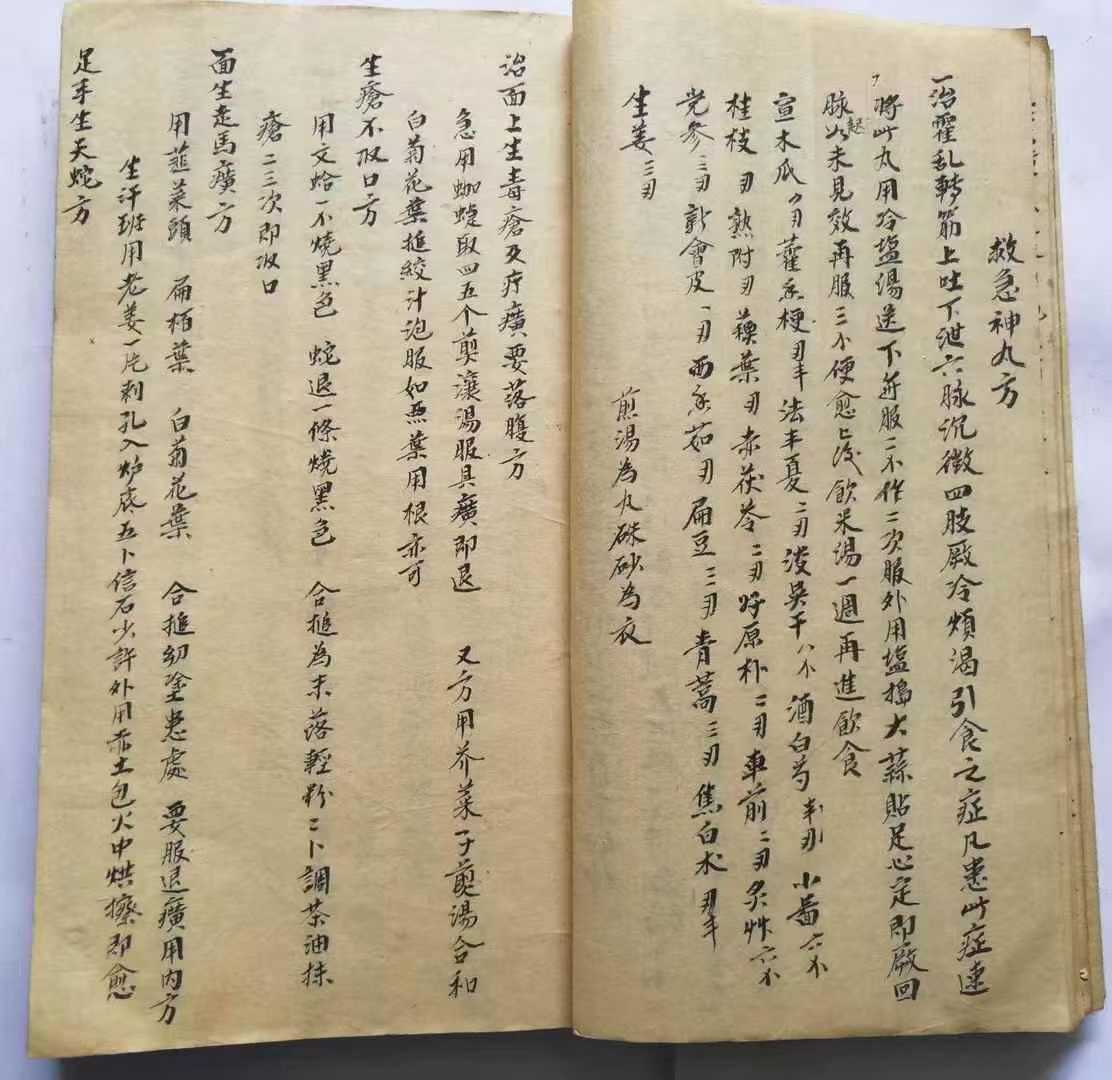 救急神丸方
一治霍乱轉筋上吐下泄六脉沉微四肢厥冷煩渴引食之症凡患此症速
將此丸用冷塩湯送下每服二个作二次服外用塩搗大蒜貼足心定即厥回
脉起如未見效再服三个便愈愈後飲米湯一週再進飲食
宣木瓜 藿香梗 法半夏 淡吴干 酒白芍 小茴
桂枝 熟附 蘓葉 赤茯苓 好原朴 車前 炙艸
党参 新會皮 西香茹 扁豆 青蒿 焦白朮
生姜
煎湯為丸硃砂為衣
治面上生毒瘡及疔癀要落腹方
急用蜘蛛取四五个煎瀼湯服具癀即退 又方用芥菜子煎湯合和
白菊花葉搥絞汁泡服如無葉用根亦可
生瘡不収口方
用文蛤一个燒黑色 蛇退一條燒黑色 合搥為末落輕粉二卜調茶油抹
瘡二三次即収口
面生走馬癀方
用韮菜頭 扁栢葉 白菊花葉 合搥幼塗患處 要服退癀用内方
生汗班用老姜一片刺孔入炉底五卜信石少許外用赤土包火中烘擦即愈
足手生天蛇方